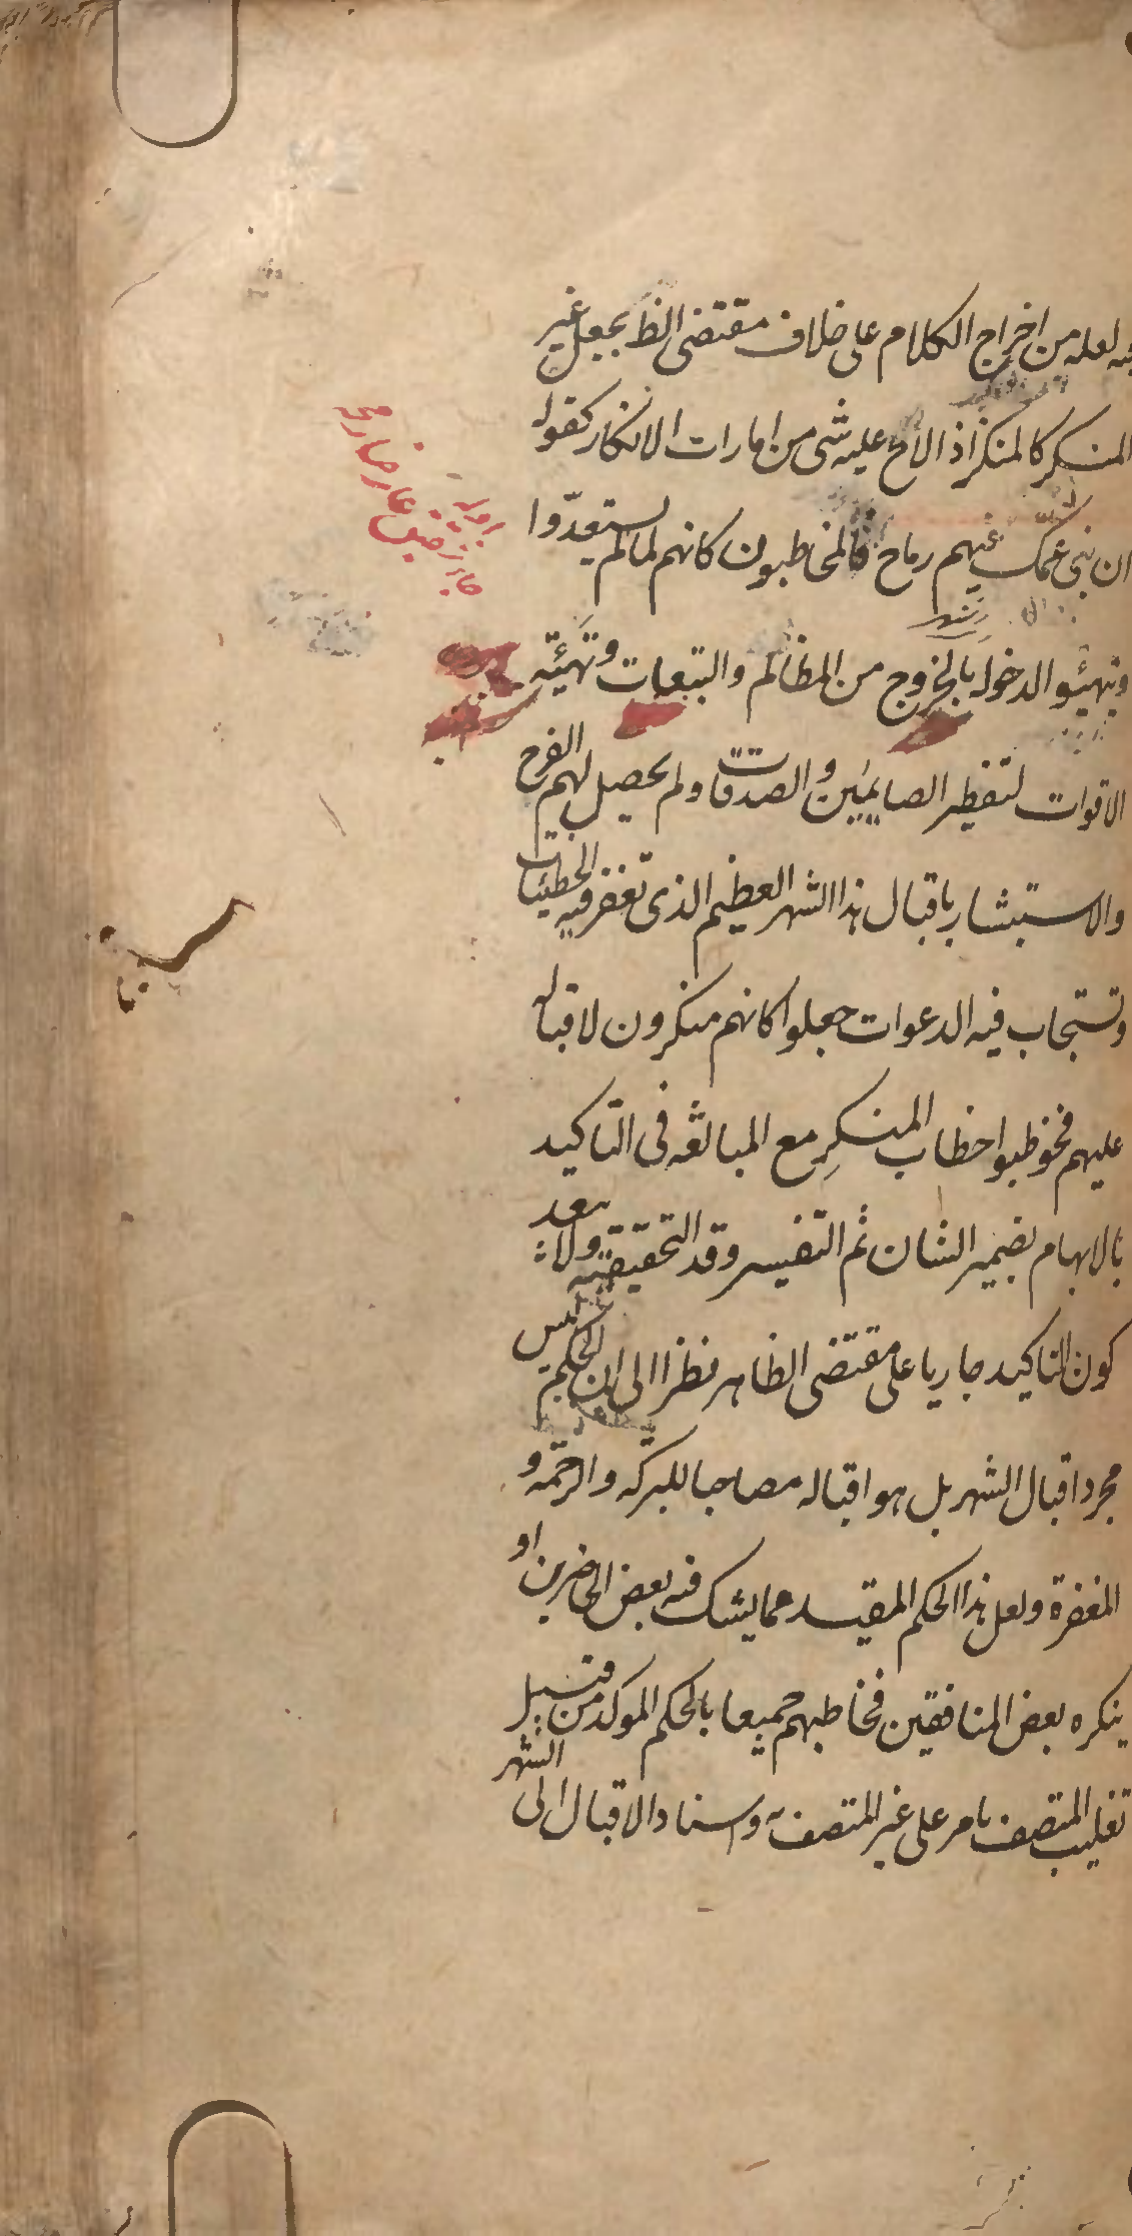 لعله من اخراج الكلام على خلاف مقتضى الظ بجعل غير
المنكر كالمنكر اذ الاح عليه شى من امارات الانكار كقوله
ان بنى عمك فيهم رماح فالمخاطبون كانهم لما لم يستعدوا
وتهيئو الدخوله بالخروج من المظالم والتبعات وتهيئة
الاقوات لتفطير الصايمين والصدقات ولم يحصل لهم الفرح
والاستبشار باقبال هذا الشهر العظيم الذى تغفر فيه الخطيئات
وتستجاب فيه الدعوات جعلوا كانهم منكرون لاقباله
عليهم فخوطبوا خطاب المنكرِ مع المبالغه فى التاكيد
بالابهام بضمير الشان ثم التفسير وقد التحقيقيه ولا يبعد
كون التاكيد جاريا على مقتضى الظاهر نظرا الى ان الحكم ليس
مجرد اقبال الشهر بل هو اقباله مصاحبا للبركه والرحمه و
المغفرة ولعل هذا الحكم المقيد مما يشك فيه بعض الحاضرين او
ينكره بعض المنافقين فخاطبهم جميعا بالحكم الموكد من قبيل
تغليب المتصف بامر على غير المتصف به واسناد الاقبال الى الشهر